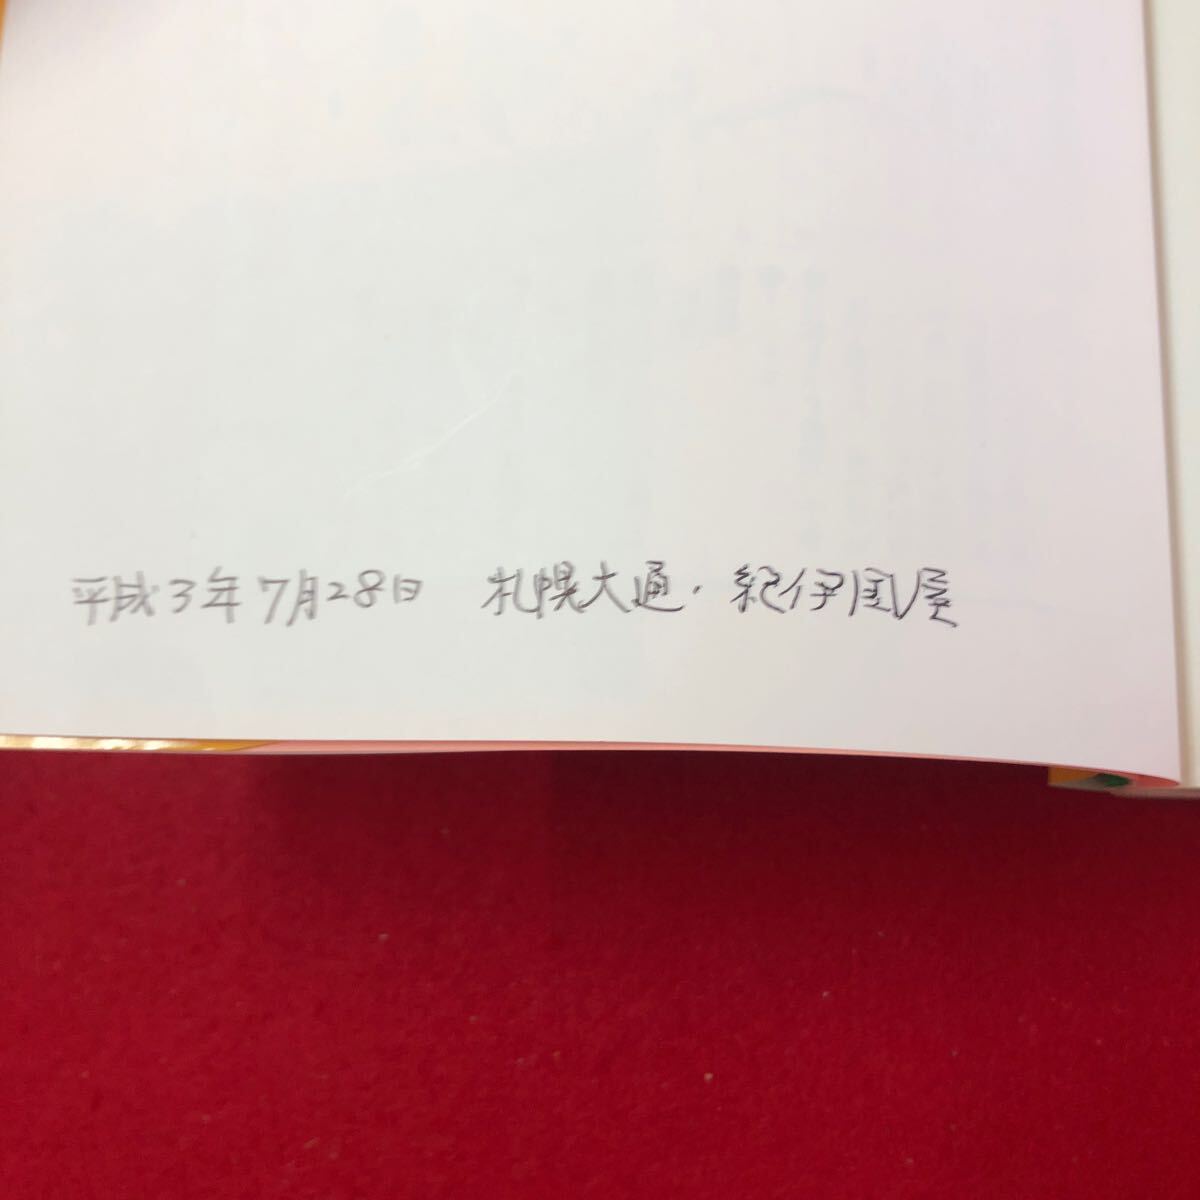 平成3年7月28日　札幌大通・紀伊国屋